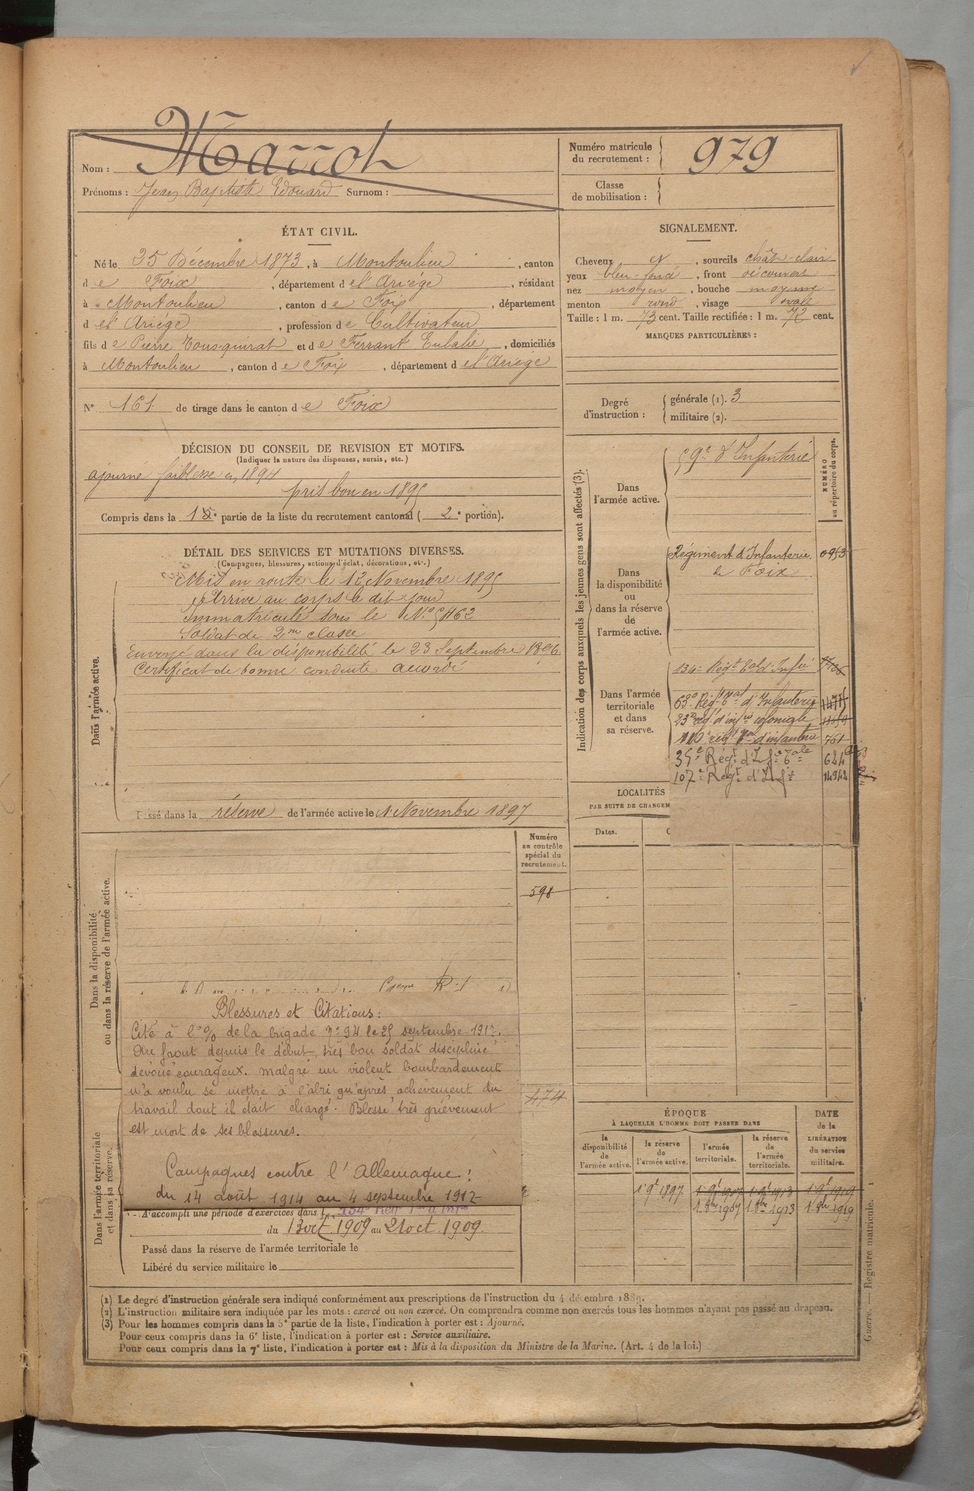 Nom : Marrot
Prénoms : Jean Baptiste Edouard Surnom :
Numéro matricule du recrutement : 979
Classe de mobilisation :
ÉTAT CIVIL.
Né le 25 Décembre 1873, à Montoulieu, canton
de Foix, département de l'Ariége, résidant
à Montoulieu, canton de Foix, département
de l'Ariége, profession de Cultivateur
fils de Pierre et de Ferrant Eulalie, domiciliés
à Montoulieu, canton de Foix, département de l'Ariege
N° 161 de tirage dans le canton de Foix
SIGNALEMENT.
Cheveux , sourcils chât-clair
yeux bleu-foncé, front découvert
nez moyen, bouche moyenne
menton rond, visage ovale
Taille : 1 m. 73 cent. Taille rectifiée : 1 m. 72 cent.
MARQUES PARTICULIÈRES :
Degré d'instruction : générale (1). 3
militaire (2).
DÉCISION DU CONSEIL DE REVISION ET MOTIFS.
(Indiquer la nature des dispenses, sursis, etc.)
ajourné faiblesse en 1894
pris bon en 1895
Compris dans la partie de la liste du recrutement cantonal ( 2e portion).
DÉTAIL DES SERVICES ET MUTATIONS DIVERSES.
(Campagnes, blessures, actions d'éclat, décorations, etc.)
Dans l'armée active.
Mis en route le 13 Novembre 1895
Arrivé au corps le dit jour
Immatriculé sous le N°
Soldat de 2me classe
Envoyé dans la disponibilité le 23 Septembre 1896
Certificat de bonne conduite accordé
Passé dans la réserve de l'armée active le 1 Novembre 1897
Indication des corps auxquels les jeunes gens sont affectés (3).
NUMÉRO au répertoire du corps.
Dans l'armée active.
59e d'Infanterie
Dans la disponibilité ou dans la réserve de l'armée active.
Régiment d'Infanterie
de Foix
Dans l'armée territoriale et dans sa réserve.
134e Régt tal d'Infie
63e Régt d'Infanterie
23e régt d'infie coloniale
régt d'infanterie 761
35e Régt d'Inf
107e Régt d'Inf
LOCALITÉS
PAR SUITE DE CHANGEM
Dates.
Numéro au contrôle spécial du recrutement.
598
474
Dans la disponibilité ou dans la réserve de l'armée active.
Blessures et Citations :
Cité à l'o/o de la brigade n° 94 le septembre
Au front depuis le début, très bon soldat discipliné
dévoué courageux. malgré un violent bombardement
n'a voulu se mettre à l'abri qu'après achèvement du
travail dont il était chargé. Blessé très grièvement
est mort de ses blessures.
Campagnes contre l'Allemagne :
du 14 août 1914 au 4 septembre
Dans l'armée territoriale et dans sa réserve.
A accompli une période d'exercices dans l
du 13 oct 1909 au 21 oct 1909.
Passé dans la réserve de l'armée territoriale le
Libéré du service militaire le
ÉPOQUE
À LAQUELLE L'HOMME DOIT PASSER DANS
la disponibilité de l'armée active.
la réserve de l'armée active.
l'armée territoriale.
la réserve de l'armée territoriale.
DATE de la LIBÉRATION du service militaire.
1 9e 1897 1 9e 1907 1 9e 1913 1 9e 1919
1 8bre 1907 1 8bre 1913 1 8bre 1919
(1) Le degré d'instruction générale sera indiqué conformément aux prescriptions de l'instruction du 4 décembre 1889.
(2) L'instruction militaire sera indiquée par les mots : exercé ou non exercé. On comprendra comme non exercés tous les hommes n'ayant pas passé au drapeau.
(3) Pour les hommes compris dans la 5e partie de la liste, l'indication à porter est : Ajourné.
Pour ceux compris dans la 6e liste, l'indication à porter est : Service auxiliaire.
Pour ceux compris dans la 7e liste, l'indication à porter est : Mis à la disposition du Ministre de la Marine. (Art. 4 de la loi.)
Guerre. — Registre matricule. 1